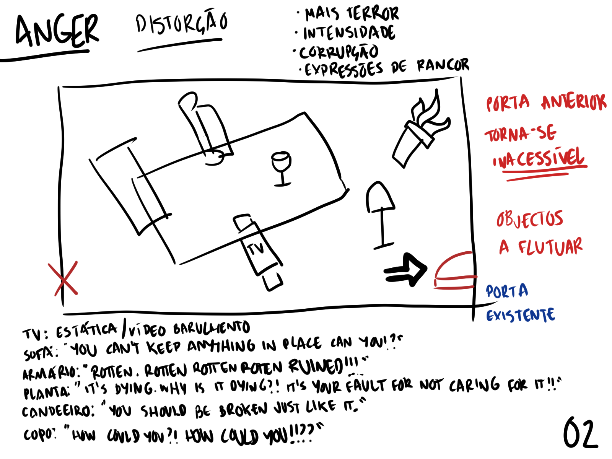 ANGER DISTORÇÃO
· MAIS TERROR
· INTENSIDADE
· CORRUPÇÃO
· EXPRESSÕES DE RANCOR
PORTA ANTERIOR
TORNA-SE
INACESSÍVEL
OBJECTOS
A FLUTUAR
PORTA
EXISTENTE
TV
TV: ESTÁTICA / VÍDEO BARULHENTO
SOFÁ: "YOU CAN'T KEEP ANYTHING IN PLACE CAN YOU!?"
ARMÁRIO: "ROTTEN. ROTTEN ROTTEN ROTEN RUINED!!!"
PLANTA: "IT'S DYING. WHY IS IT DYING?! IT'S YOUR FAULT FOR NOT CARING FOR IT!!"
CANDEEIRO: "YOU SHOULD BE BROKEN JUST LIKE IT."
COPO: "HOW COULD YOU?! HOW COULD YOU!!??"
02